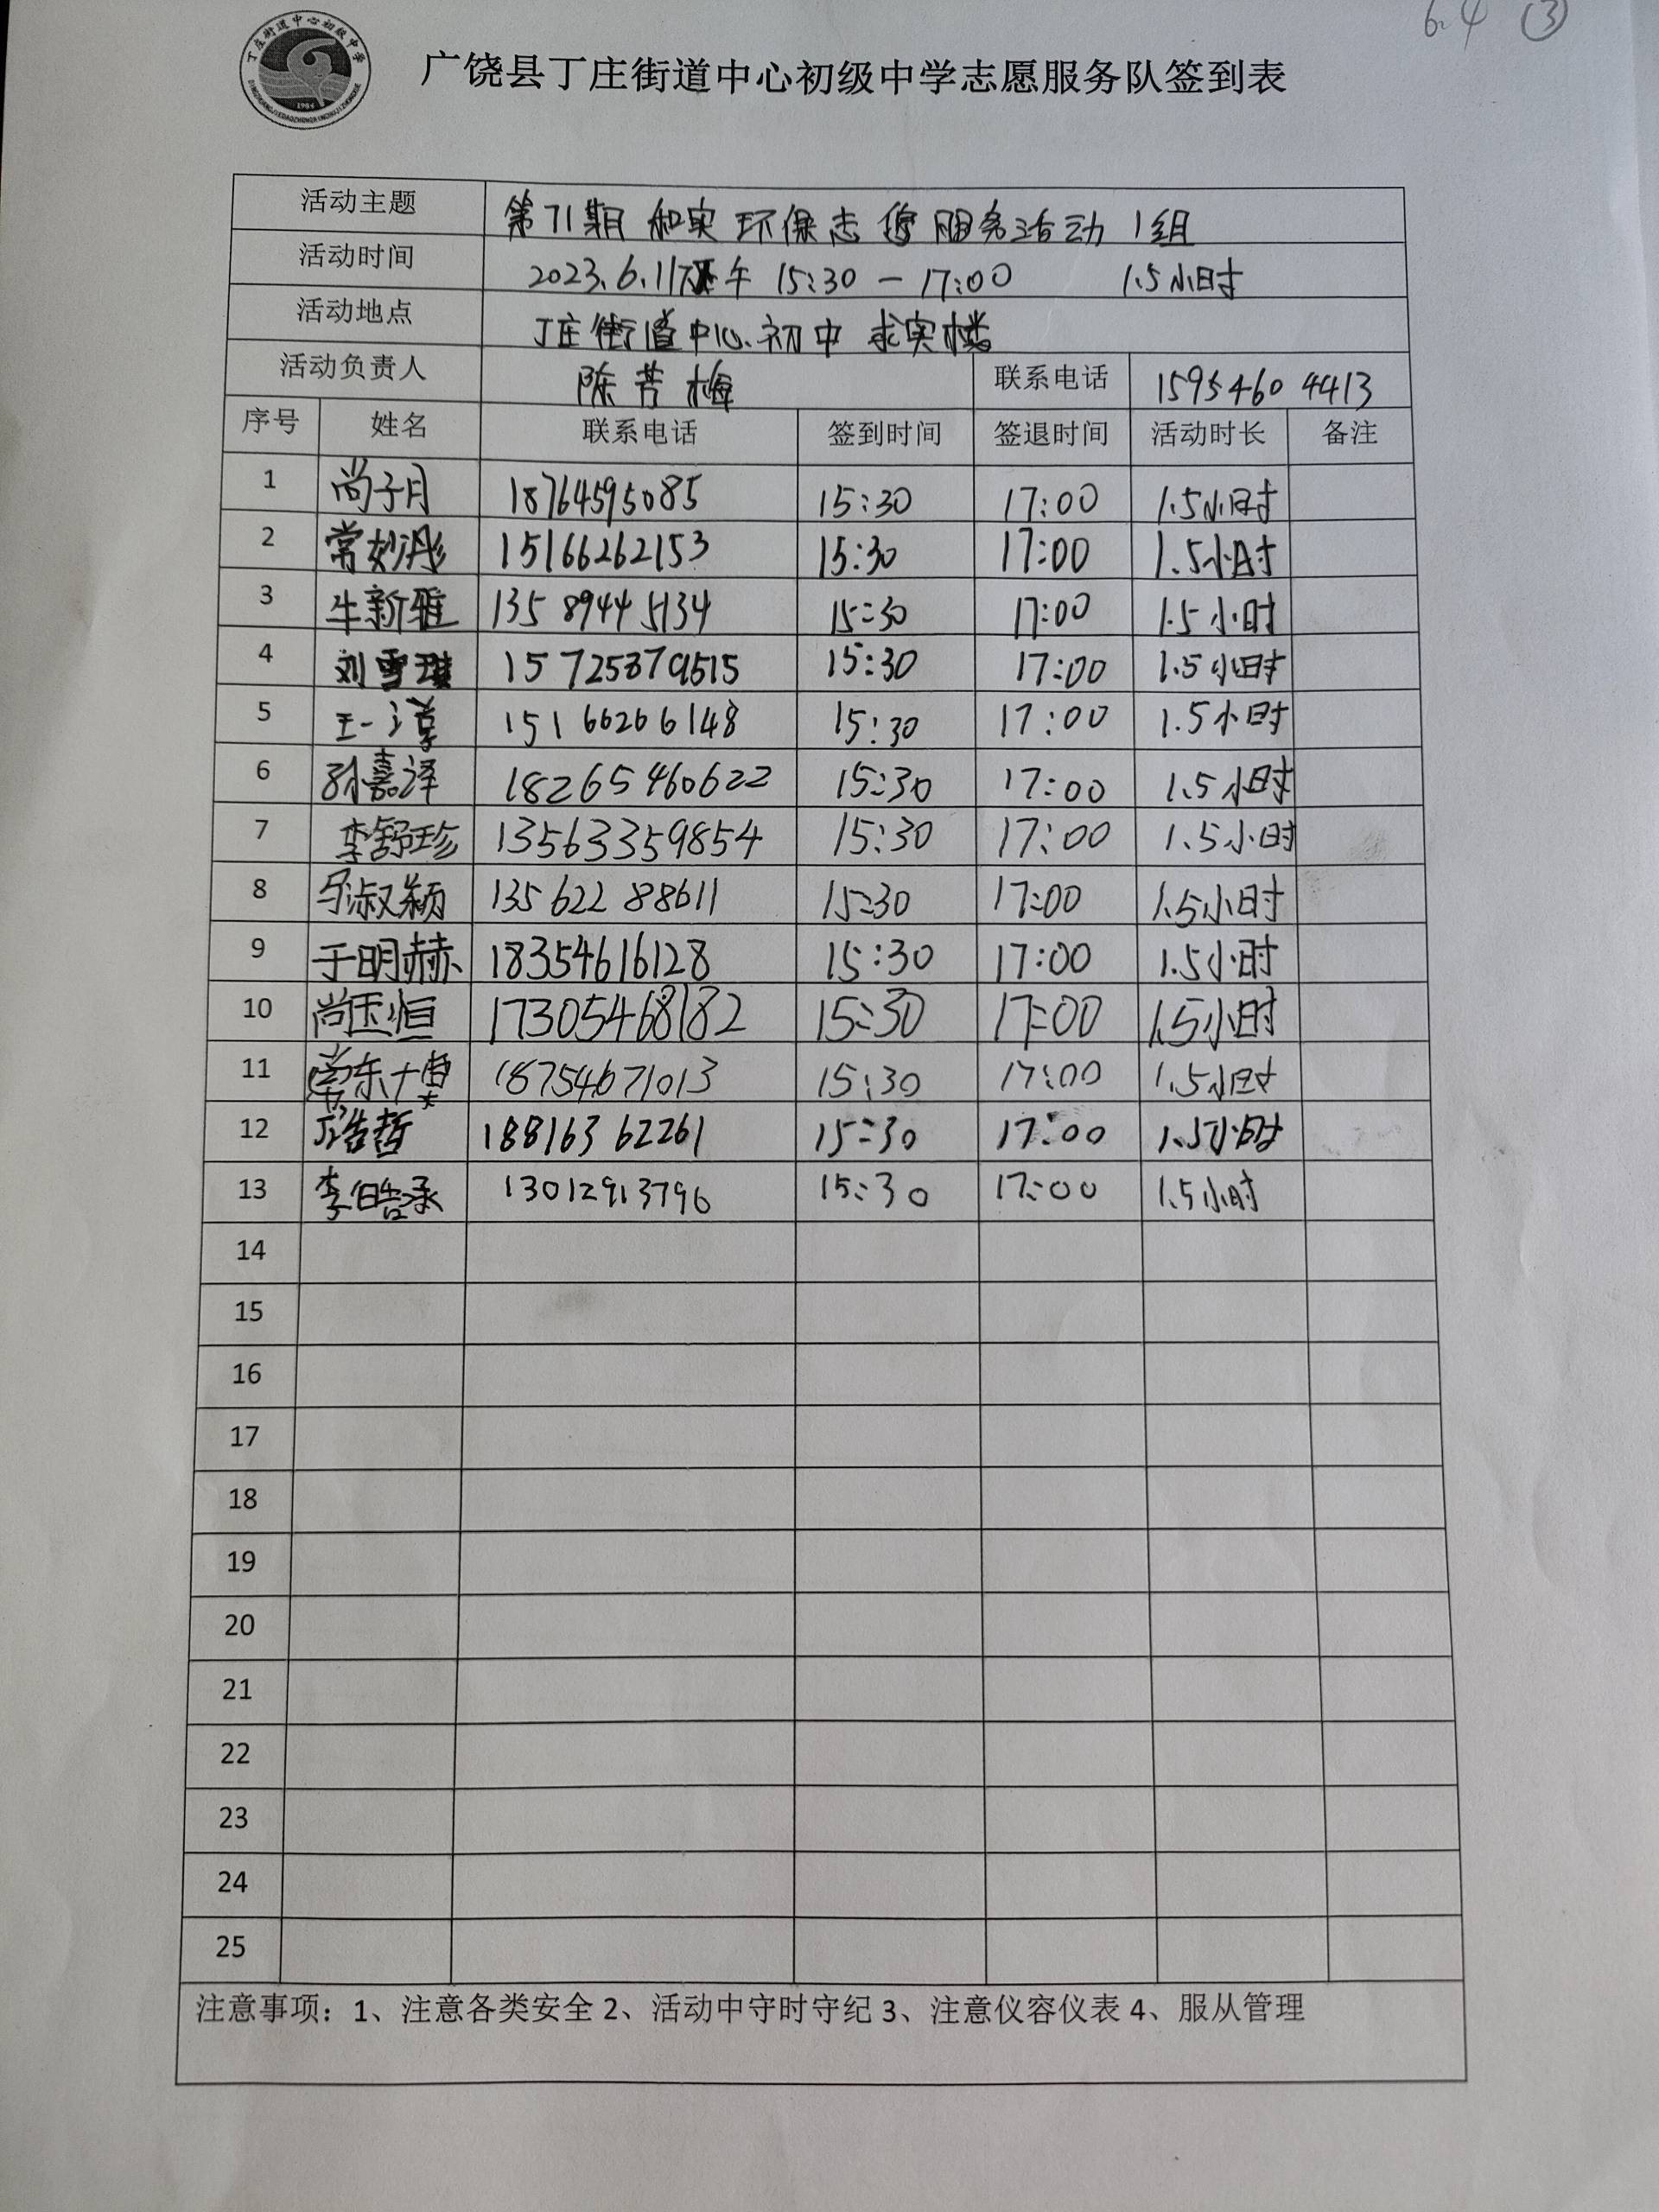 6.4 ③
丁庄街道中心初级中学
1984
广饶县丁庄街道中心初级中学志愿服务队签到表
活动主题 第71期 和实 环保志愿服务活动 1组
活动时间 2023.6.11下午 15:30-17:00 1.5小时
活动地点 丁庄街道中心初中 求实楼
活动负责人 陈芳梅 联系电话 15954604413
序号 姓名 联系电话 签到时间 签退时间 活动时长 备注
1 尚子月 18764595085 15:30 17:00 1.5小时
2 常妙彤 15166262153 15:30 17:00 1.5小时
3 牛新雅 13589445134 15:30 17:00 1.5小时
4 刘雪琪 15725379515 15:30 17:00 1.5小时
5 王一 15166266148 15:30 17:00 1.5小时
6 孙嘉泽 18265460622 15:30 17:00 1.5小时
7 李舒珍 13563359854 15:30 17:00 1.5小时
8 马淑颖 13562288611 15:30 17:00 1.5小时
9 于明赫 18354616128 15:30 17:00 1.5小时
10 尚玉恒 17305468182 15:30 17:00 1.5小时
11 常东 18754671013 15:30 17:00 1.5小时
12 丁浩哲 18816362261 15:30 17:00 1.5小时
13 李皓 13012913796 15:30 17:00 1.5小时
14
15
16
17
18
19
20
21
22
23
24
25
注意事项：1、注意各类安全 2、活动中守时守纪 3、注意仪容仪表 4、服从管理